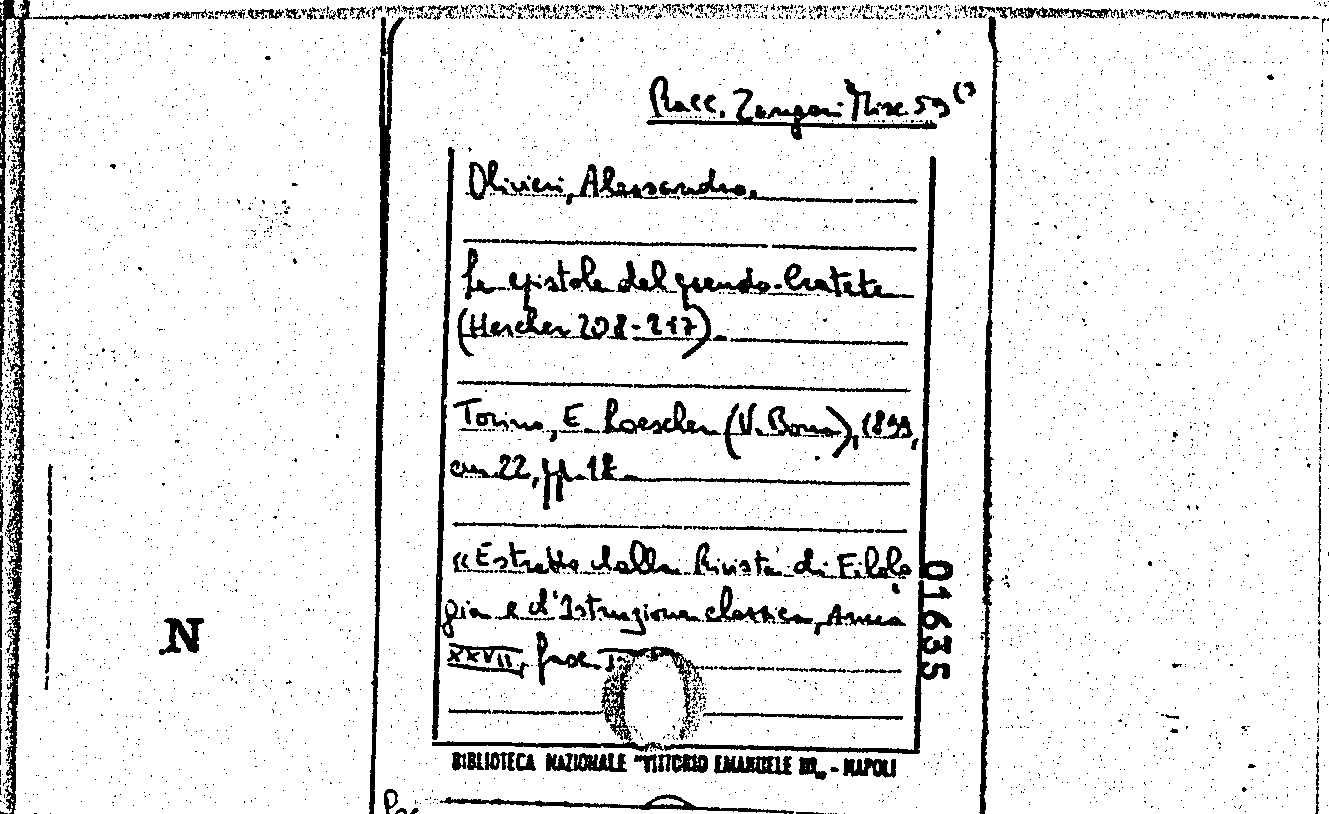 Racc. Zangari Misc 59 (
Olivieri, Alessandro.
Le epistole del pseudo-Cratete
(Hercher 208-217).
Torino, E. Loescher (V. Bona), 1899,
cm 22, pp. 18
«Estratto dalla Rivista di Filolo
gia e d'Istruzione classica, Anno
XXVII, fasc.
01635
N
BIBLIOTECA NAZIONALE "VITTORIO EMANUELE III„ - NAPOLI